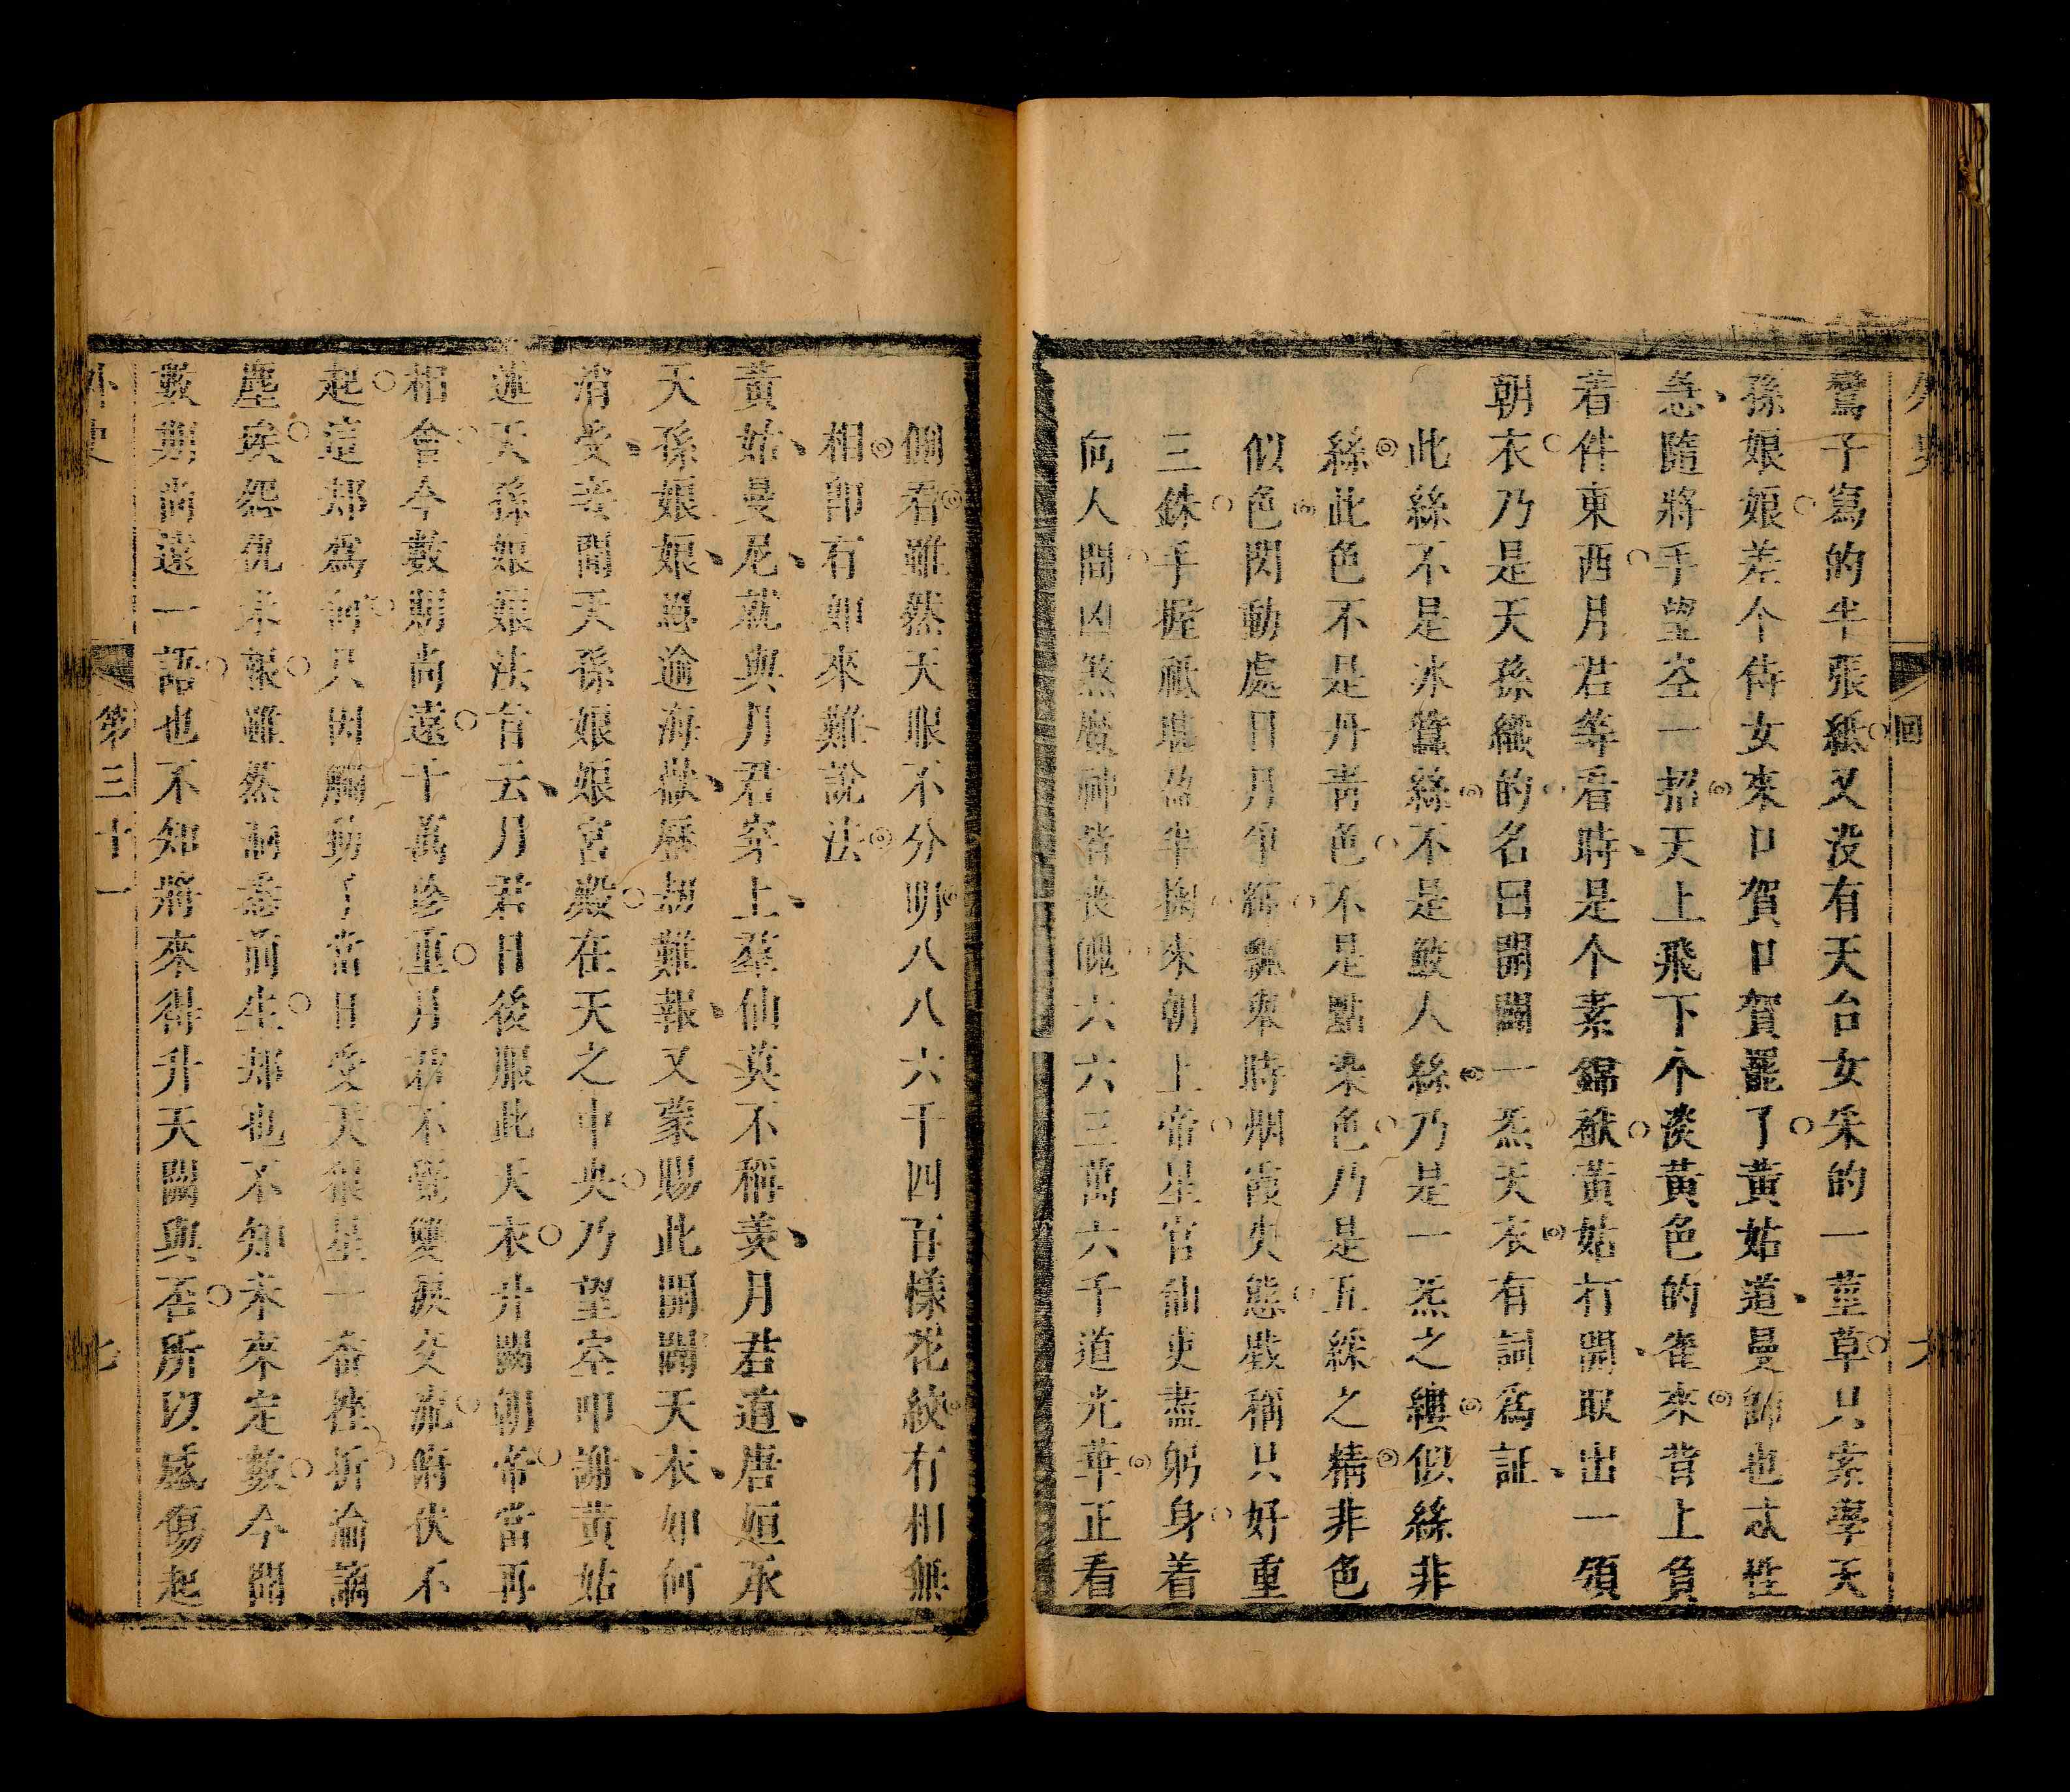 外史
回
六
鸞子寫的半張紙又没有天台女朵的一莖草只索學天
孫娘娘差个侍女來口賀口賀罷了黃姑道曼師也忒性
急隨將手望空一招天上飛下个淡黃色的雀來背上負
着件東西月君等看時是个素錦袱黃姑打開取出一領
朝衣乃是天孫織的名曰開闢一炁天衣有詞爲証
此絲不是冰蠶絲不是鮫人絲乃是一炁之縷似絲非
絲此色不是丹青色不是點染色乃是五綵之精非色
似色閃動處日月爭輝飄舉時烟霞失態戥稱只好重
三銖手握祗堪盈半掬來朝上帝星官仙吏盡躬身着
向人間凶煞魔神皆喪魄六六三萬六千道光華正看
側看雖然天眼不分明八八六千四百樣花紋有相無
相卽有如來難說法
黃姑曼尼就與月君穿上羣仙莫不稱羡月君道唐姮承
天孫娘娘恩逾海嶽歷劫難報又蒙賜此開闢天衣如何
消受妾聞天孫娘娘宮殿在天之中央乃望空叩謝黃姑
述天孫娘娘法旨云月君日後服此天衣升闕朝帝當再
相會今數期尚遠千萬珍重月君不覺雙淚交流俯伏不
起這却爲何只因觸動了當日受天狼星一番挫折淪謫
塵埃怨仇未報雖然洞悉前生却也不知未來定數今聞
數期尚遠一語也不知將來得升天闕與否所以感傷起
外史
第三十一
七